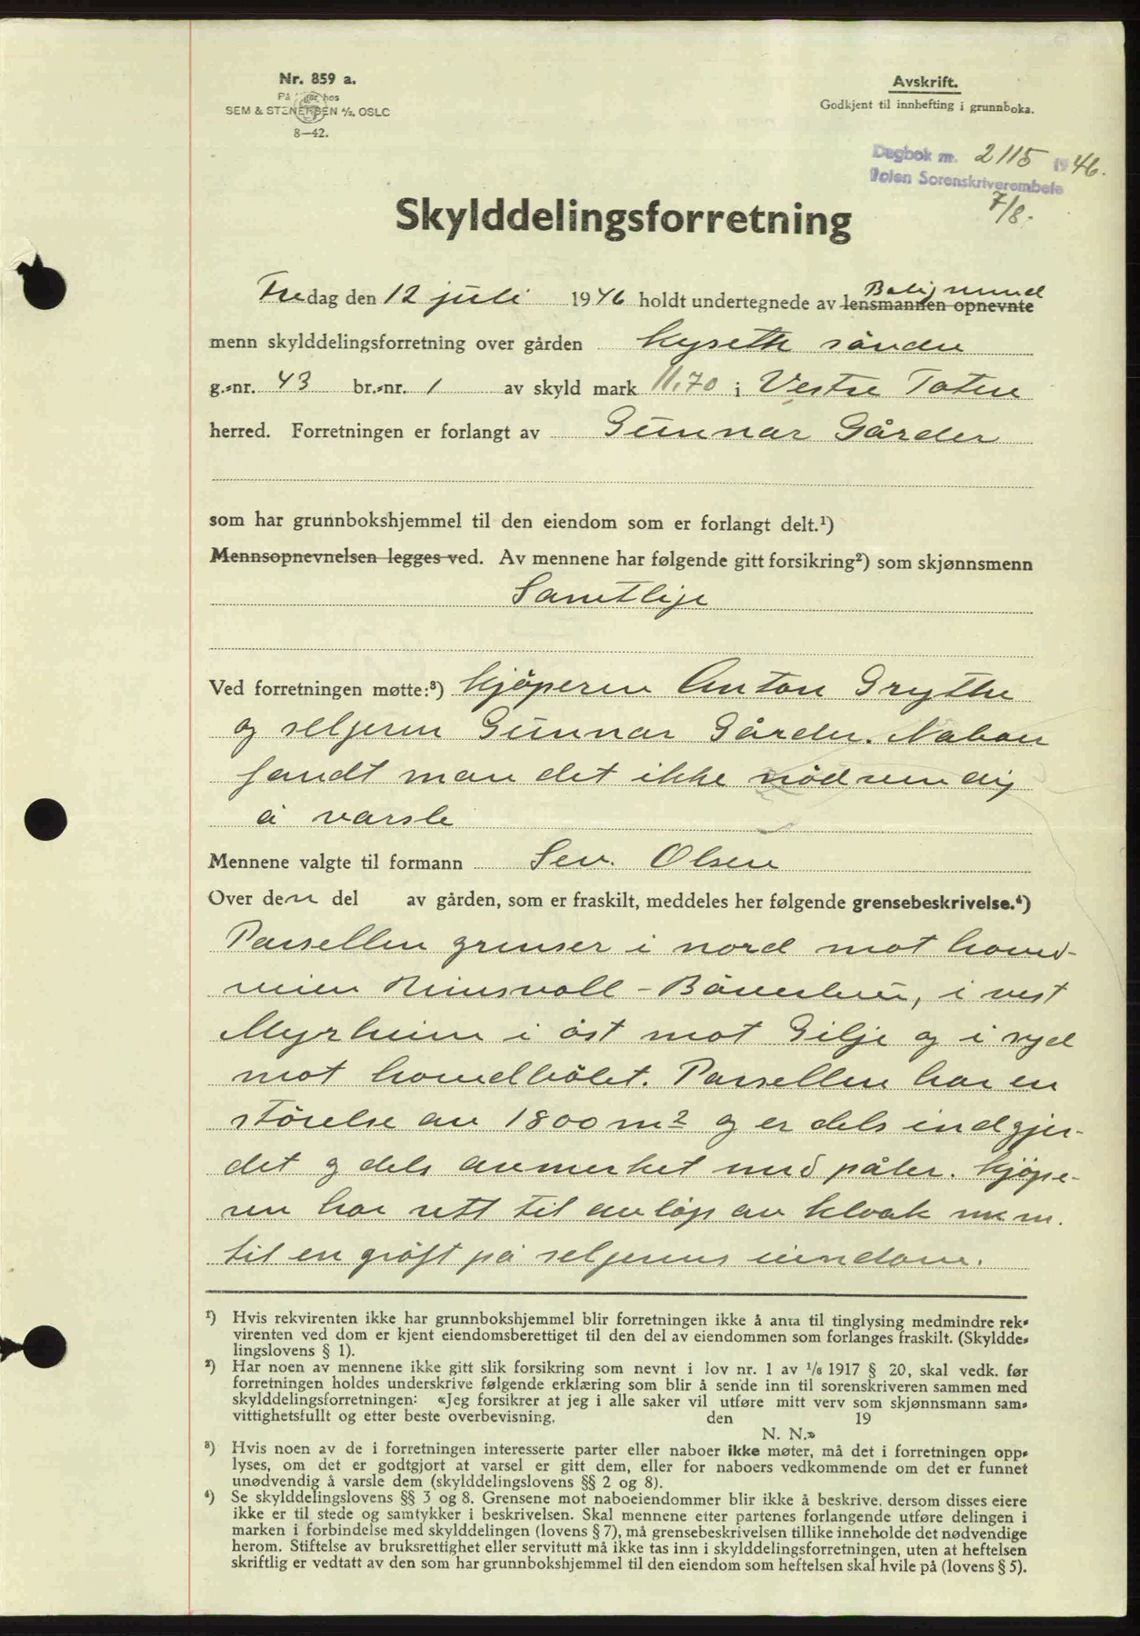 Nr. 859 a.
På lager hos
SEM & STENERSEN A/S, OSLO
8—42.
Avskrift.
Godkjent til innhefting i grunnboka.
Dagbok nr. 2115 1946.
Toten Sorenskriverembete
7/8.
Skylddelingsforretning
Fredag den 12 juli 1946 holdt undertegnede av lensmannen opnevnte
menn skylddelingsforretning over gården Kyseth søndre
g.-nr. 43 br.-nr. 1 av skyld mark 11.70 i Vestre Toten
herred. Forretningen er forlangt av Gunnar Gårder
som har grunnbokshjemmel til den eiendom som er forlangt delt.¹)
Mennsopnevnelsen legges ved. Av mennene har følgende gitt forsikring²) som skjønnsmenn
Samtlige
Ved forretningen møtte:³) Kjøperen Anton Grythe
og selgeren Gunnar Gårder. Naboer
fandt man det ikke nødvendig
å varsle
Mennene valgte til formann Sev. Olsen
Over den del av gården, som er fraskilt, meddeles her følgende grensebeskrivelse.⁴)
Parsellen grenser i nord mot hoved-
veien Reinsvoll - Bøverbru, i vest
Myrheim i øst mot Gilje og i syd
mot hovedbølet. Parsellen har en
størelse av 1800 m² og er dels indgjer-
det og dels avmerket med påler. Kjøpe-
ren har rett til avløp av kloak m.m.
til en grøft på selgerens eiendom.
¹) Hvis rekvirenten ikke har grunnbokshjemmel blir forretningen ikke å anta til tinglysing medmindre rek-
virenten ved dom er kjent eiendomsberettiget til den del av eiendommen som forlanges fraskilt. (Skyldde-
lingslovens § 1).
²) Har noen av mennene ikke gitt slik forsikring som nevnt i lov nr. 1 av 1/6 1917 § 20, skal vedk. før
forretningen holdes underskrive følgende erklæring som blir å sende inn til sorenskriveren sammen med
skylddelingsforretningen: «Jeg forsikrer at jeg i alle saker vil utføre mitt verv som skjønnsmann sam-
vittighetsfullt og etter beste overbevisning. den 19
N. N.»
³) Hvis noen av de i forretningen interesserte parter eller naboer ikke møter, må det i forretningen opp-
lyses, om det er godtgjort at varsel er gitt dem, eller for naboers vedkommende om det er funnet
unødvendig å varsle dem (skylddelingslovens §§ 2 og 8).
⁴) Se skylddelingslovens §§ 3 og 8. Grensene mot naboeiendommer blir ikke å beskrive, dersom disses eiere
ikke er til stede og samtykker i beskrivelsen. Skal mennene etter partenes forlangende utføre delingen i
marken i forbindelse med skylddelingen (lovens § 7), må grensebeskrivelsen tillike inneholde det nødvendige
herom. Stiftelse av bruksrettighet eller servitutt må ikke tas inn i skylddelingsforretningen, uten at heftelsen
skriftlig er vedtatt av den som har grunnbokshjemmel til den eiendom som heftelsen skal hvile på (lovens § 5).